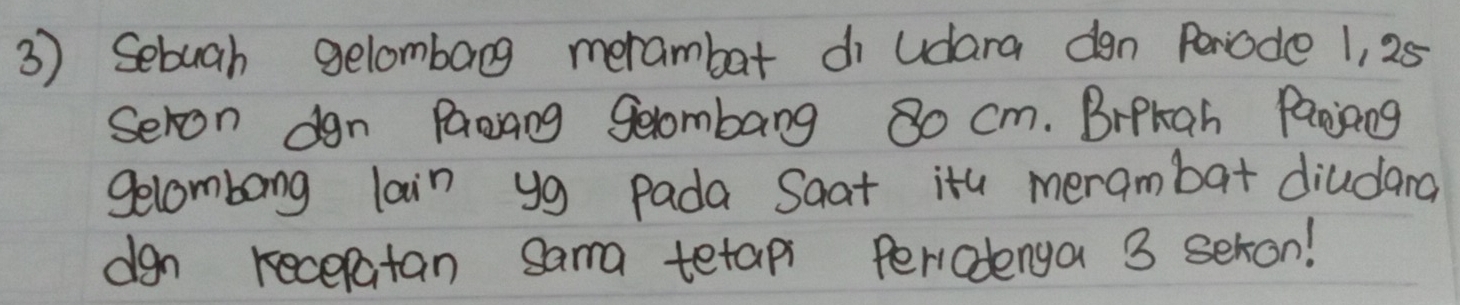 3) Sebuah gelombang merambat di udara dgn Periode 1,25
Sekon dgn Panjang gelombang 80 cm. Brpkah Panjang
gelombang lain yg pada saat itu merambat diudara
dgn kecepatan sama tetapi Periodenya 3 sekon!